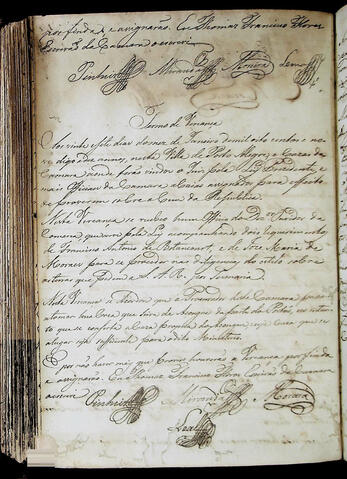 por finda, e assignarão. Eu Thomaz Francisco Flores
Escrivão da Camara o escrevi
Pinheiro Miranda Moreira Leal
Termo de Vereança
Aos vinte e sete dias do mez de Janeiro de mil oito centos e no
digo dez annos, nesta Villa de Porto Alegre, e Cazas da
Camara aonde forão vindos o Juiz pela Ley Prezidente, e
mais Officiaes da Camara abaixo assignados para effeito
de proverem sobre o bem da Republica.
Nesta Vereança se recebeo hum Officio do
acompanhando dois requerimentos
de Francisco Antonio de Betancourt, e de Joze Maria de
Moraes para se proceder nas deligencias do estilo sobre
aterras que pedem a S. A. R. por Sesmaria.
Nesta Vereança se acordou que o Procurador desta Camara
huma Caza que sirva de Asougue
to que se conserta a Caza propria do Asougue, cuja Caza que se
alugar seja sufficiente para o dito Ministerio.
E por não haver mais que prover houverão a Vereança por finda
e assignarão. Eu Thomaz Francisco Flores Escrivão da Camara
o escrevi
Pinheiro Miranda Moreira
Leal